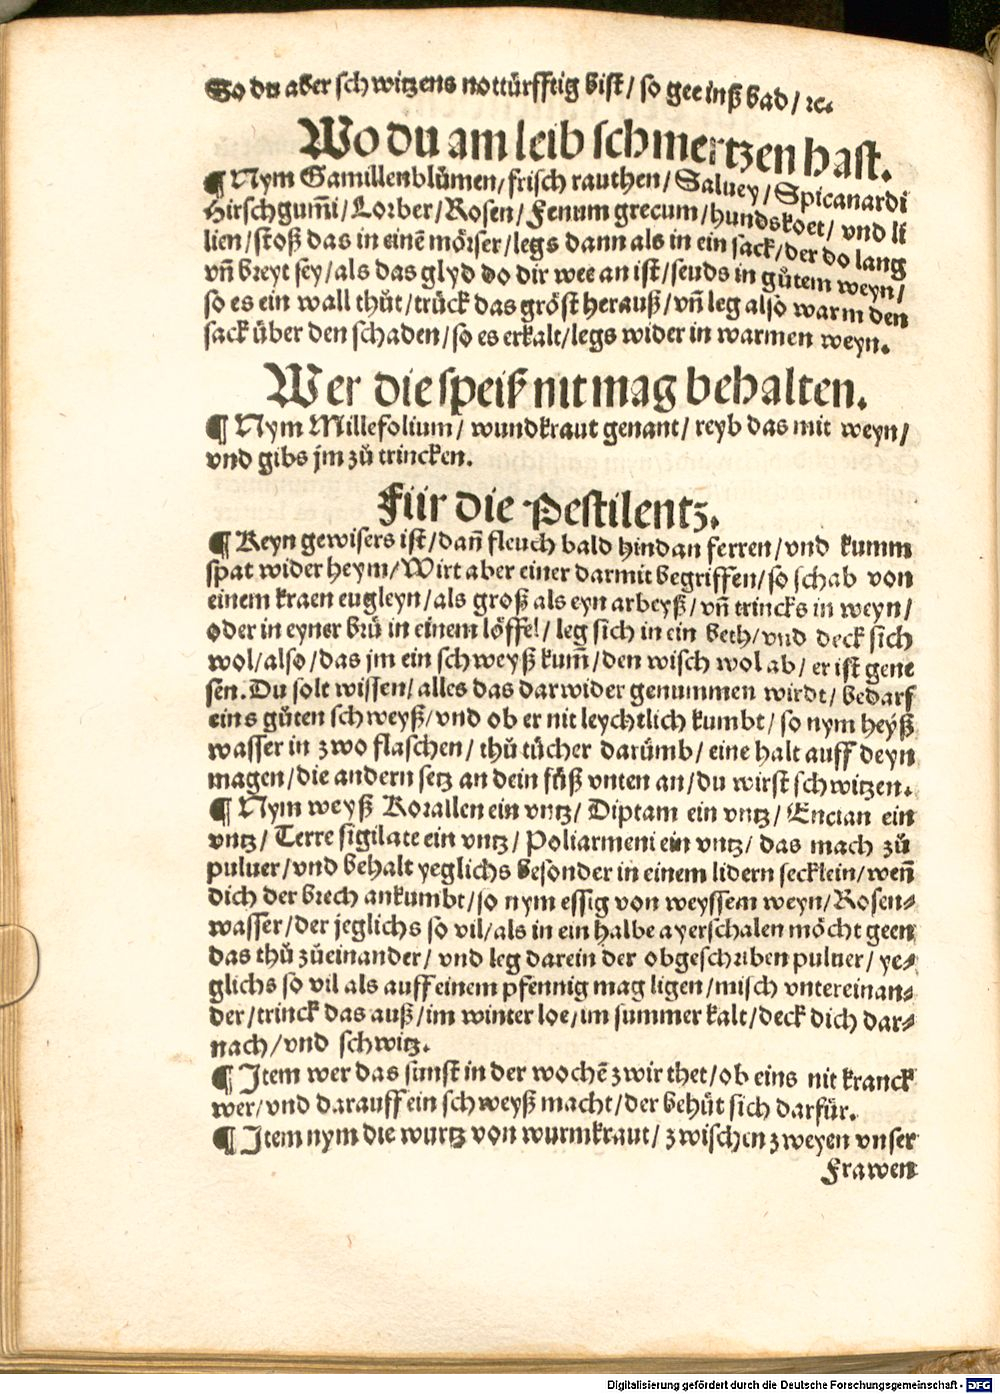 So du aber schwitzens nottürfftig bist/ so gee inß bad/ ꝛc.
Wo du am leib schmertzen hast.
¶ Nym Gamillenblůmen/ frisch rauthen/ Saluey/ Spicanardi
Hirschgum̄i/ Lorber/ Rosen/ Fenum grecum/ hundskoet/ vnd li
lien/ stoß das in einē mörser/ legs dann als in ein sack/ der do lang
vn̄ breyt sey/ als das glyd do dir wee an ist/ seuds in gůtem weyn/
so es ein wall thůt/ trück das gröst herauß/ vn̄ leg also warm den
sack über den schaden/ so es erkalt/ legs wider in warmen weyn.
Wer die speiß nit mag behalten.
¶ Nym Millefolium/ wundkraut genant/ reyb das mit weyn/
vnd gibs jm zů trincken.
Für die Pestilentz.
¶ Keyn gewisers ist/ dan̄ fleuch bald hindan ferren/ vnd kumm
spat wider heym/ Wirt aber einer darmit begriffen/ so schab von
einem kraen eugleyn/ als groß als eyn arbeyß/ vn̄ trincks in weyn/
oder in eyner brü in einem löffel/ leg sich in ein beth/ vnd deck sich
wol/ also/ das jm ein schweyß kum̄/ den wisch wol ab/ er ist gene
sen. Du solt wissen/ alles das darwider genummen wirdt/ bedarf
eins gůten schweyß/ vnd ob er nit leychtlich kumbt/ so nym heyß
wasser in zwo flaschen/ thů tücher darümb/ eine halt auff deyn
magen/ die andern setz an dein füß vnten an/ du wirst schwitzen.
¶ Nym weyß Korallen ein vntz/ Diptam ein vntz/ Encian ein
vntz/ Terre sigilate ein vntz/ Poliarmeni ein vntz/ das mach zů
puluer/ vnd behalt yeglichs besonder in einem lidern secklein/ wen̄
dich der brech ankumbt/ so nym essig von weyssem weyn/ Rosen⸗
wasser/ der jeglichs so vil/ als in ein halbe ayerschalen möcht geen
das thů zůeinander/ vnd leg darein der obgeschriben puluer/ ye⸗
glichs so vil als auff einem pfennig mag ligen/ misch vntereinan⸗
der/ trinck das auß/ im winter loe/ im summer kalt/ deck dich dar⸗
nach/ vnd schwitz.
¶ Item wer das sunst in der wochē zwir thet/ ob eins nit kranck
wer/ vnd darauff ein schweyß macht/ der behüt sich darfür.
¶ Item nym die wurtz von wurmkraut/ zwischen zweyen vnser
Frawen
Digitalisierung gefördert durch die Deutsche Forschungsgemeinschaft - DFG